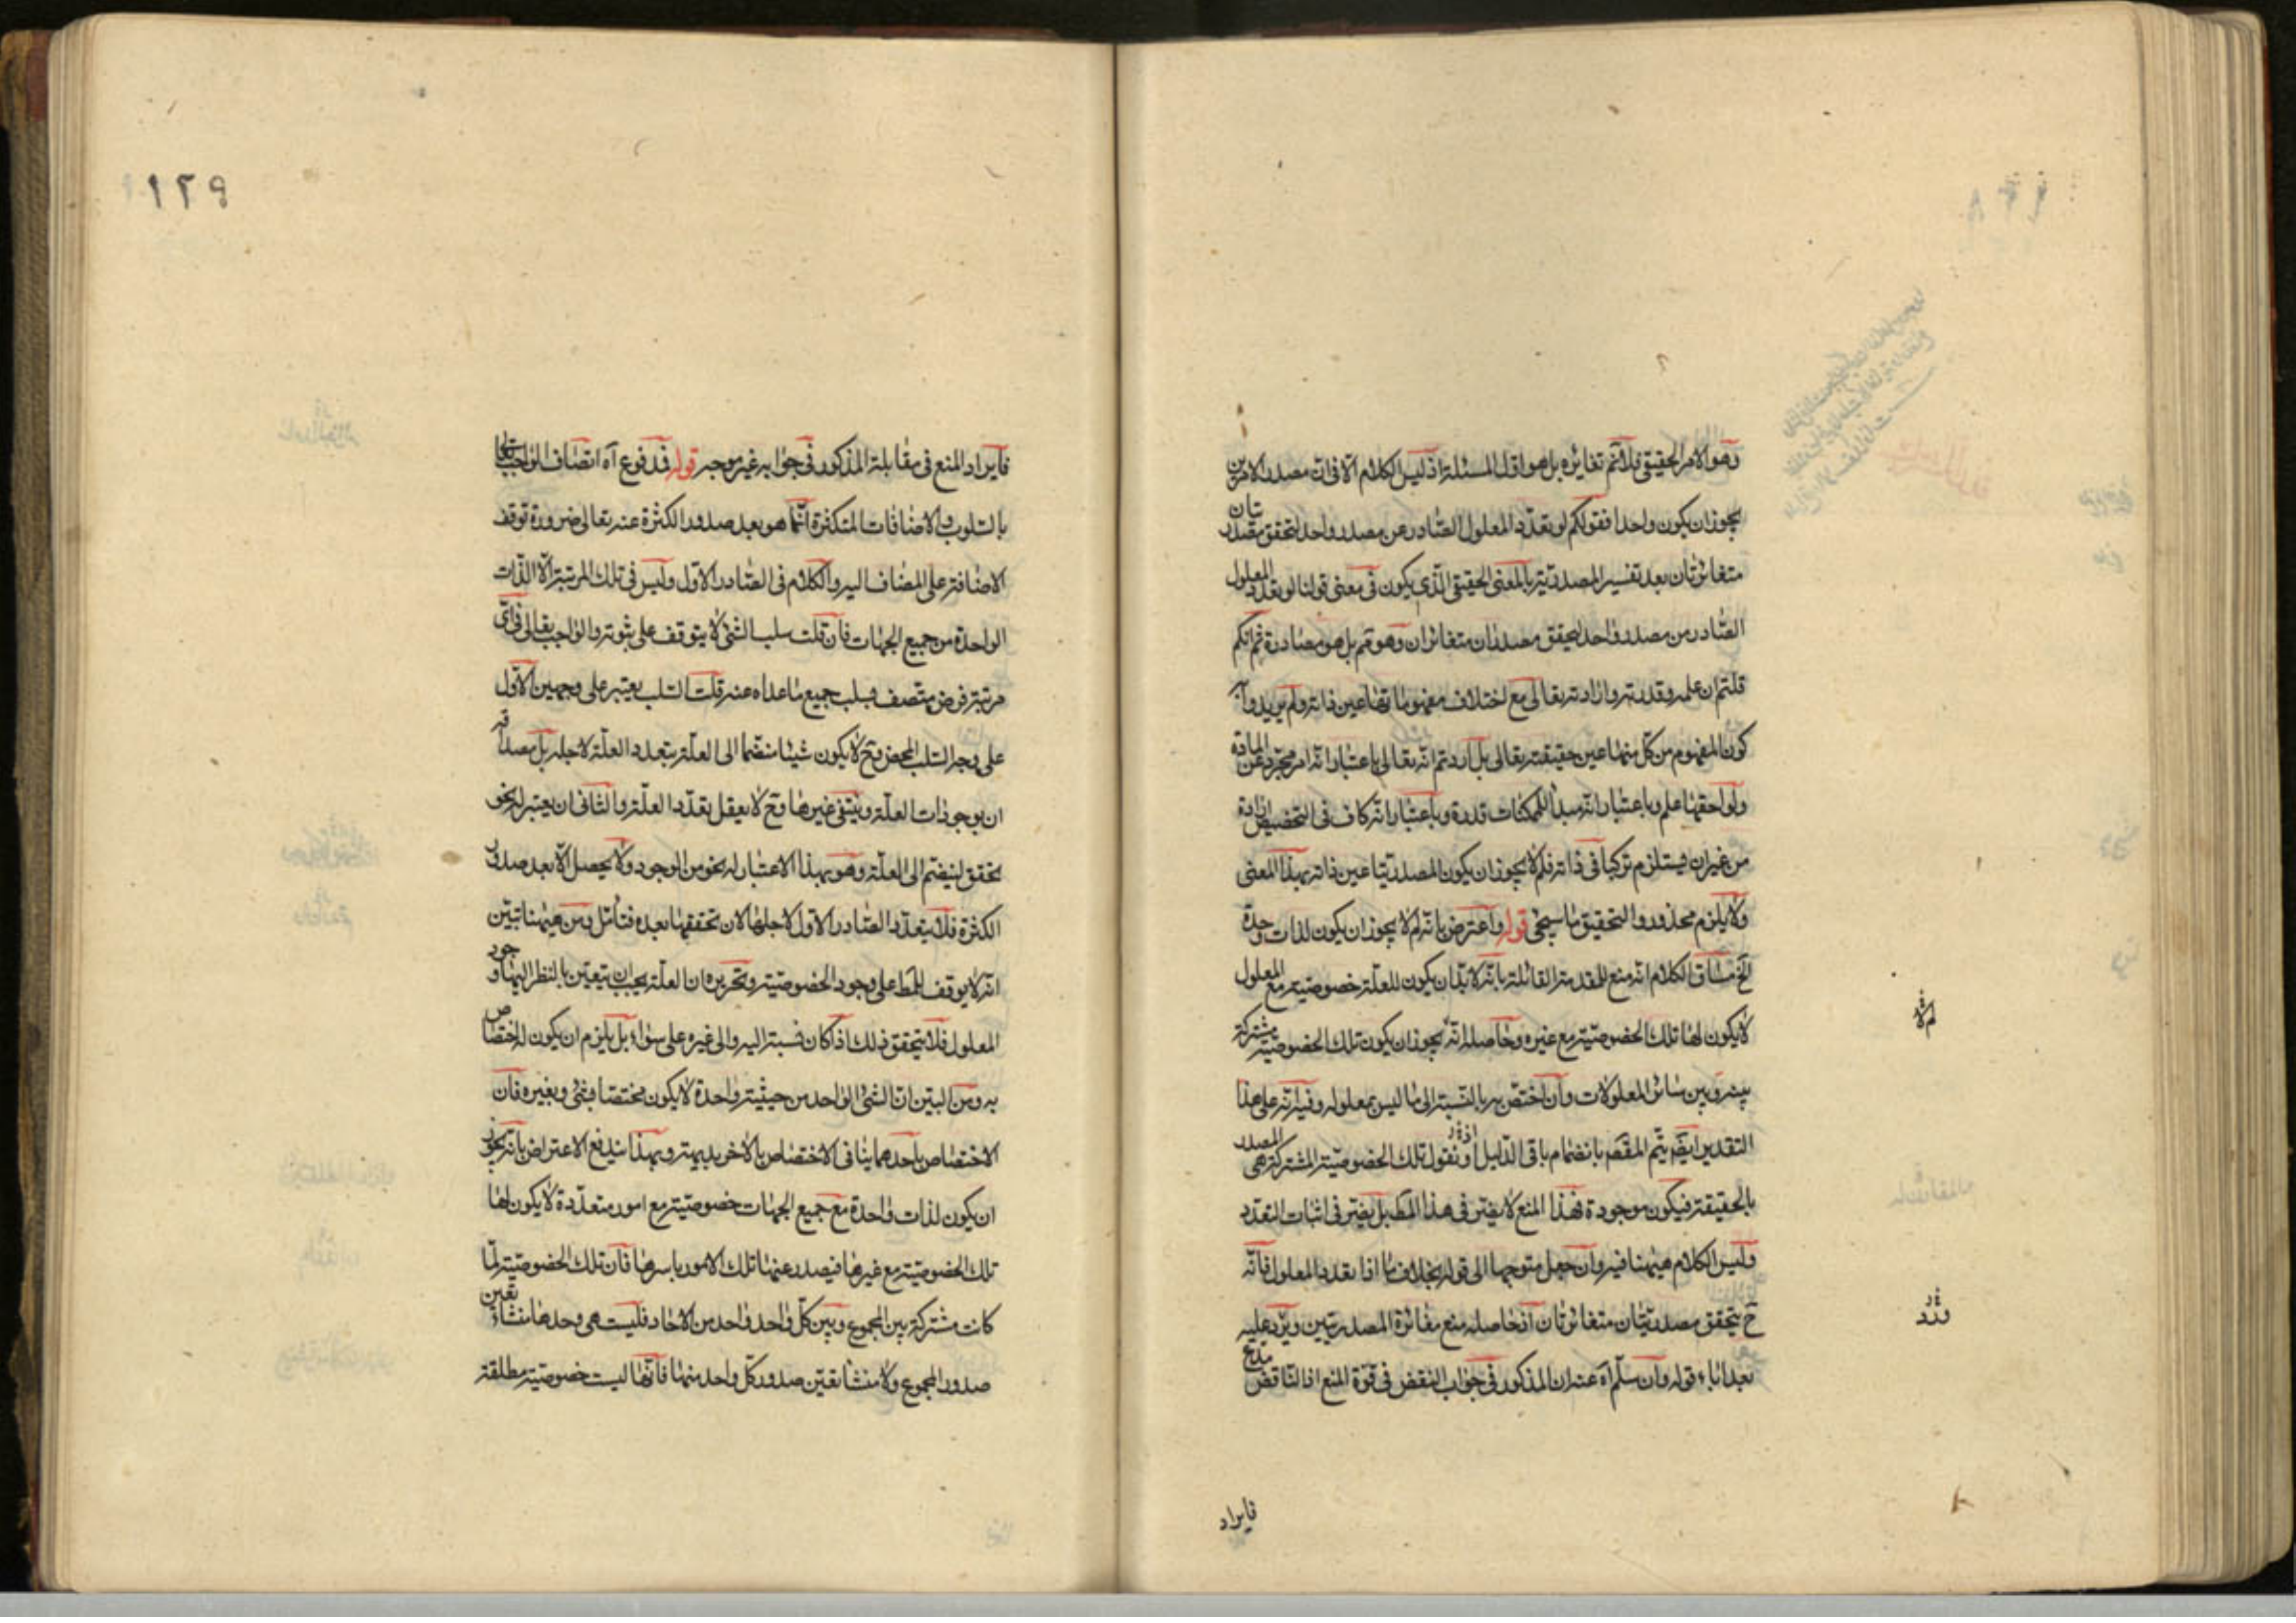 وهو الامر الحقيقى فلانم تغايره بل هو اول المسئلة اذ ليس الكلام الا فى ان مصدر الامرين
يجوز ان يكون واحدا فقولكم لو تعدد المعلول الصادر عن مصدر واحد لتحقق مصدريتان
متغائرتان بعد تفسير المصدرية بالمعنى الحقيقى الذى يكون فى معنى قولنا لو تعدد المعلول
الصادر من مصدر واحد لتحقق مصدران متغائران وهو مم بل هو مصادرة ثم انكم
قلتم ان علمه وقدرته وارادته تعالى مع اختلاف مفهوماتها عين ذاته ولم يريدوا به
كون المفهوم من كل منها عين حقيقته تعالى بل اردتم انه تعالى باعتبار انه امر مجرد عن المادة
ولواحقها علم وباعتبار انه مبدأ للممكنات قدرة وباعتبار انه كاف فى التخصيص ارادة
من غير ان يستلزم تركبا فى ذاته فلم لا يجوز ان يكون المصدريتا عين ذاته بهذا المعنى
ولا يلزم محذور والتحقيق ما سيجئ قوله واعترض بانه لم لا يجوز ان يكون لذات واحدة
الخ مساق الكلام انه منع للمقدمة القائلة بانه لابد ان يكون للعلة خصوصية مع المعلول
لا يكون لها تلك الخصوصية مع غيره وحاصله انه يجوز ان يكون تلك الخصوصية مشتركة
بينه وبين سائر المعلولات وان اختص به بالنسبة الى ما ليس بمعلوله وفيه انه على هذا
التقدير ايضا يتم المقصد بانضمام باقى الدليل اذ نقول تلك الخصوصية المشتركة هى المصدر
بالحقيقة فيكون موجودة فهذا المنع لا يضر فى هذا المط بل يضر فى اثبات التعدد
وليس الكلام هيهنا فيه وان جعل متوجها الى قوله بخلاف ما اذا تعدد المعلول فانه
ح يتحقق مصدريتان متغائرتان اذ حاصله منع مغائرة المصدريتين ويرد عليه
بعد اباء قوله وان سلم آه عنه ان المذكور فى جواب النقض فى قوة المنع اذ الناقض مدع
لم لا
فايراد
١٢٩
فايراد المنع فى مقابلة المذكور فى جوابه غير موجه قوله فمدفوع آه اتصاف الواجب تعالى
بالسلوب والاضافات المتكثرة انما هو بعد صدور الكثرة عنه تعالى ضرورة توقف
الاضافة على المضاف اليه والكلام فى الصادر الاول وليس فى تلك المرتبة الا الذات
الواحدة من جميع الجهات فان قلت سلب الشئ لا يتوقف على ثبوته والواجب تعالى فى اى
مرتبة فرض متصف بسلب جميع ما عداه عنه قلت السلب يعتبر على وجهين الاول
على وجه السلب المحض وح لا يكون شيئا منضما الى العلة يتعدد العلة لاجله بل مصداقه
ان يوجد ذات العلة وينتفى غيرها وح لا يعقل تعدد العلة والثانى ان يعتبر له نحو
تحقق لينضم الى العلة وهو بهذا الاعتبار له نحو من الوجود ولا يحصل الا بعد صدور
الكثرة فلا يتعدد الصادر الاول لاجلها لان تحققها بعده فتأمل ومن هيهنا تبين
انه لا يوقف للمط على وجود الخصوصية وتحريره ان العلة يجب ان يتعين بالنظر اليها وجود
المعلول فلا يتحقق ذلك اذا كان نسبته اليه والى غيره على سواء بل يلزم ان يكون له اختصاص
به ومن البين ان الشئ الواحد من حيثية واحدة لا يكون مختصا بشئ وبغيره فان
الاختصاص باحدهما ينافى الاختصاص بالاخر بديهة وبهذا يندفع الاعتراض بانه يجوز
ان يكون لذات واحدة مع جميع الجهات خصوصية مع امور متعددة لا يكون لها
تلك الخصوصية مع غيرها فيصدر عنها تلك الامور باسرها فان تلك الخصوصية لما
كانت مشتركة بين المجموع وبين كل واحد واحد من الاحاد فليست هى وحدها منشاء تعين
صدور المجموع ولا منشا تعين صدور كل واحد منها فانها ليست خصوصية مطلقة